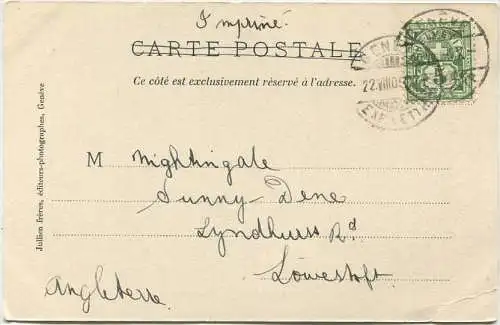 Imprimé.
CARTE POSTALE
Ce côté est exclusivement réservé à l'adresse.
M Nightingale
Sunny Dene
Lyndhurst Rd
Lowestoft
Angleterre.
Jullien frères, éditeurs-photographes, Genève